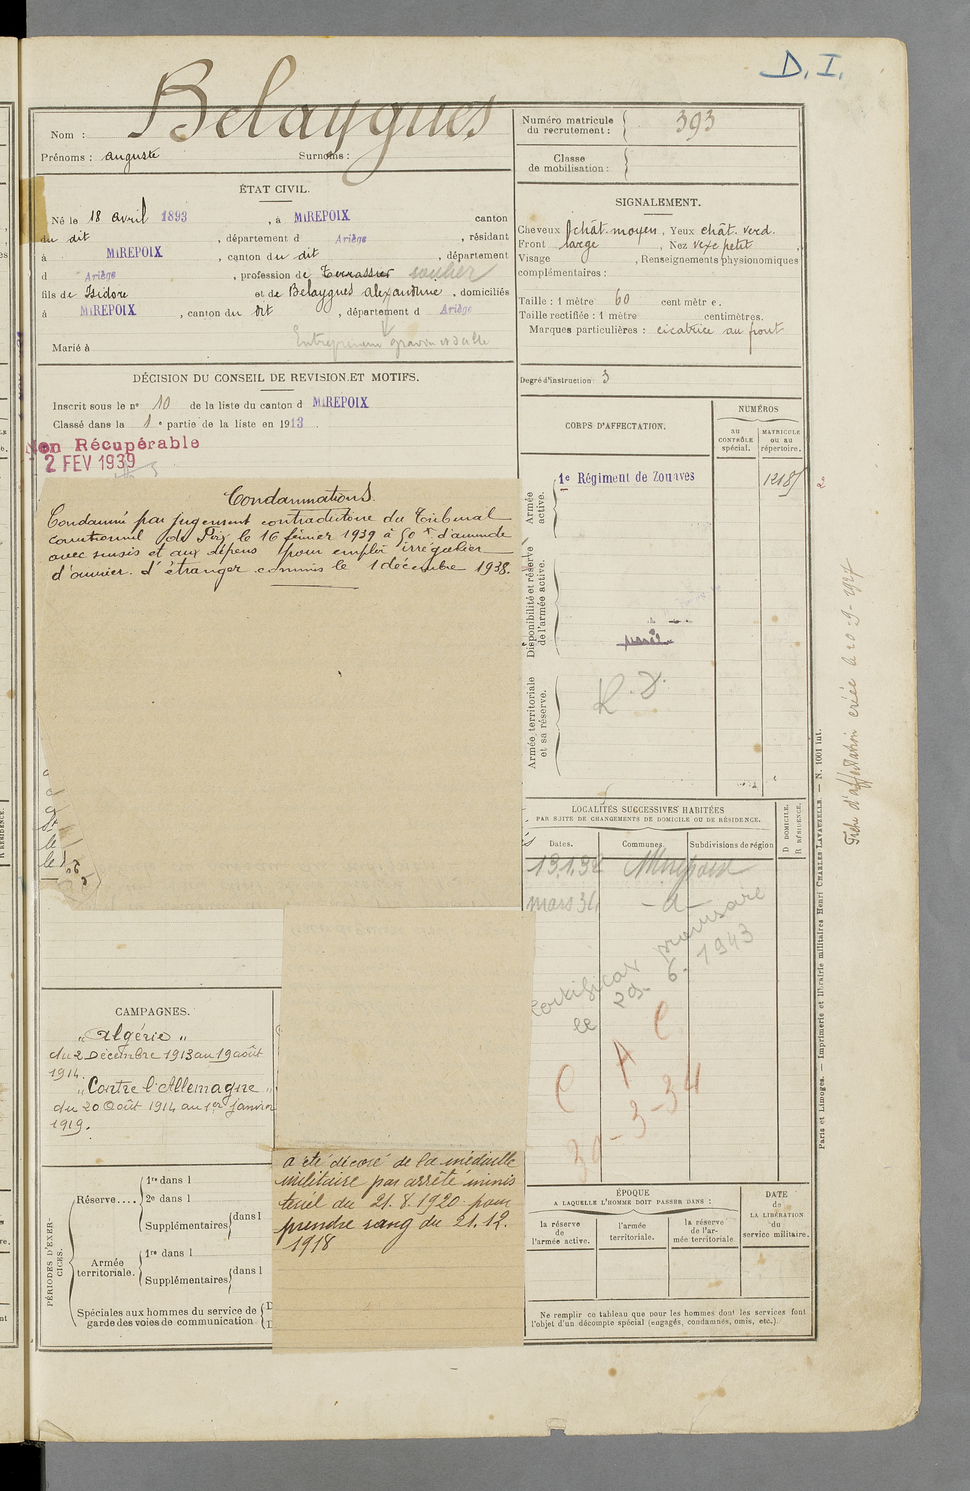 D. I.
Nom : Belaygues
Prénoms : auguste Surnoms :
Numéro matricule du recrutement : 393
Classe de mobilisation :
ÉTAT CIVIL.
Né le 18 avril 1893, à MIREPOIX canton
du dit, département d Ariège, résidant
à MIREPOIX, canton du dit, département
d Ariège, profession de Terrassier
fils de Isidore et de Belaygues alexandrine, domiciliés
à MIREPOIX, canton du dit, département d Ariège
Entrepreneur
Marié à
SIGNALEMENT.
Cheveux chât. moyen, Yeux chât. verd.
Front large, Nez vexe petit,
Visage , Renseignements physionomiques
complémentaires :
Taille : 1 mètre 60 centimètre.
Taille rectifiée : 1 mètre centimètres.
Marques particulières : cicatrice au front
Degré d'instruction : 3
DÉCISION DU CONSEIL DE REVISION ET MOTIFS.
Inscrit sous le n° 10 de la liste du canton d MIREPOIX
Classé dans la 1e partie de la liste en 1913.
Non Récupérable
2 FEV 1939
Condamnations.
Condamné par jugement contradictoire du Tribunal
correctionnel de Foix le 16 février 1939 à 50 f d'amende
avec sursis et aux dépens pour emploi irrégulier
d'ouvrier d'étranger commis le 1 décembre 1938.
CORPS D'AFFECTATION.
NUMÉROS
AU CONTRÔLE spécial.
MATRICULE ou au répertoire.
Armée active.
1e Régiment de Zouaves 12185
Disponibilité et réserve de l'armée active.
Armée territoriale et sa réserve.
R. D.
LOCALITÉS SUCCESSIVES HABITÉES
PAR SUITE DE CHANGEMENTS DE DOMICILE OU DE RÉSIDENCE.
Dates. Communes. Subdivisions de région
D DOMICILE. R RÉSIDENCE.
13.1.32 Mirepoix
mars 31 - d -
provisoire
le 29. 6. 1943
C A C
30-3-34
CAMPAGNES.
"Algérie"
du 2 Décembre 1913 au 19 août
1914.
"Contre l'Allemagne"
du 20 Août 1914 au 1er janvier
1919.
a été décoré de la médaille
militaire par arrêté minis
tériel du 21.8.1920 pour
prendre rang du 21.12.
1918
PÉRIODES D'EXERCICES.
Réserve....
1re dans l
2e dans l
Supplémentaires dans l
Armée territoriale.
1re dans l
Supplémentaires dans l
Spéciales aux hommes du service de
garde des voies de communication
ÉPOQUE
A LAQUELLE L'HOMME DOIT PASSER DANS :
la réserve de l'armée active.
l'armée territoriale.
la réserve de l'armée territoriale
DATE
de
LA LIBÉRATION
du
service militaire.
Ne remplir ce tableau que pour les hommes dont les services font
l'objet d'un décompte spécial (engagés, condamnés, omis, etc.).
Paris et Limoges. — Imprimerie et librairie militaires Henri CHARLES-LAVAUZELLE. — N. 1001 int.
Fiche d'affectation créée le 20-9-1927